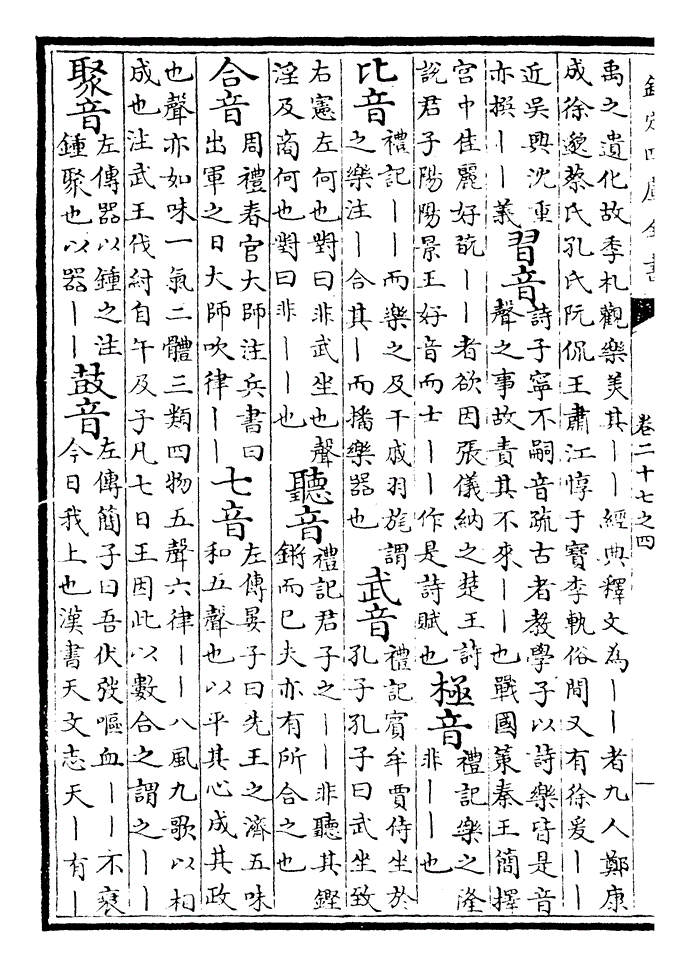 欽定四庫全書
卷二十七之四
禹之遺化故季札觀樂美其||經典釋文為||者九人鄭康
成徐邈蔡氏孔氏阮侃王肅江惇于寶李軌俗間又有徐爰||
近吳興沈重
亦撰||義
習音
詩子寧不嗣音疏古者教學子以詩樂皆是音
聲之事故責其不來||也戰國策秦王簡擇
宮中佳麗好翫||者欲因張儀納之楚王詩
說君子陽陽景王好音而士||作是詩賦也
極音
禮記樂之隆
非||也
比音
禮記||而樂之及干戚羽旄謂
之樂注|合其|而播樂器也
武音
禮記賓牟賈侍坐於
孔子孔子曰武坐致
右憲左何也對曰非武坐也聲
淫及商何也對曰非||也
聽音
禮記君子之||非聽其鏗
鏘而已夫亦有所合之也
合音
周禮春官大師注兵書曰
出軍之日大師吹律||
七音
左傳晏子曰先王之濟五味
和五聲也以平其心成其政
也聲亦如味一氣二體三類四物五聲六律||八風九歌以相
成也注武王伐紂自午及子凡七日王因此以數合之謂之||
聚音
左傳器以鍾之注
鍾聚也以器||
鼓音
左傳簡子曰吾伏弢嘔血||不衰
今日我上也漢書天文志天|有|